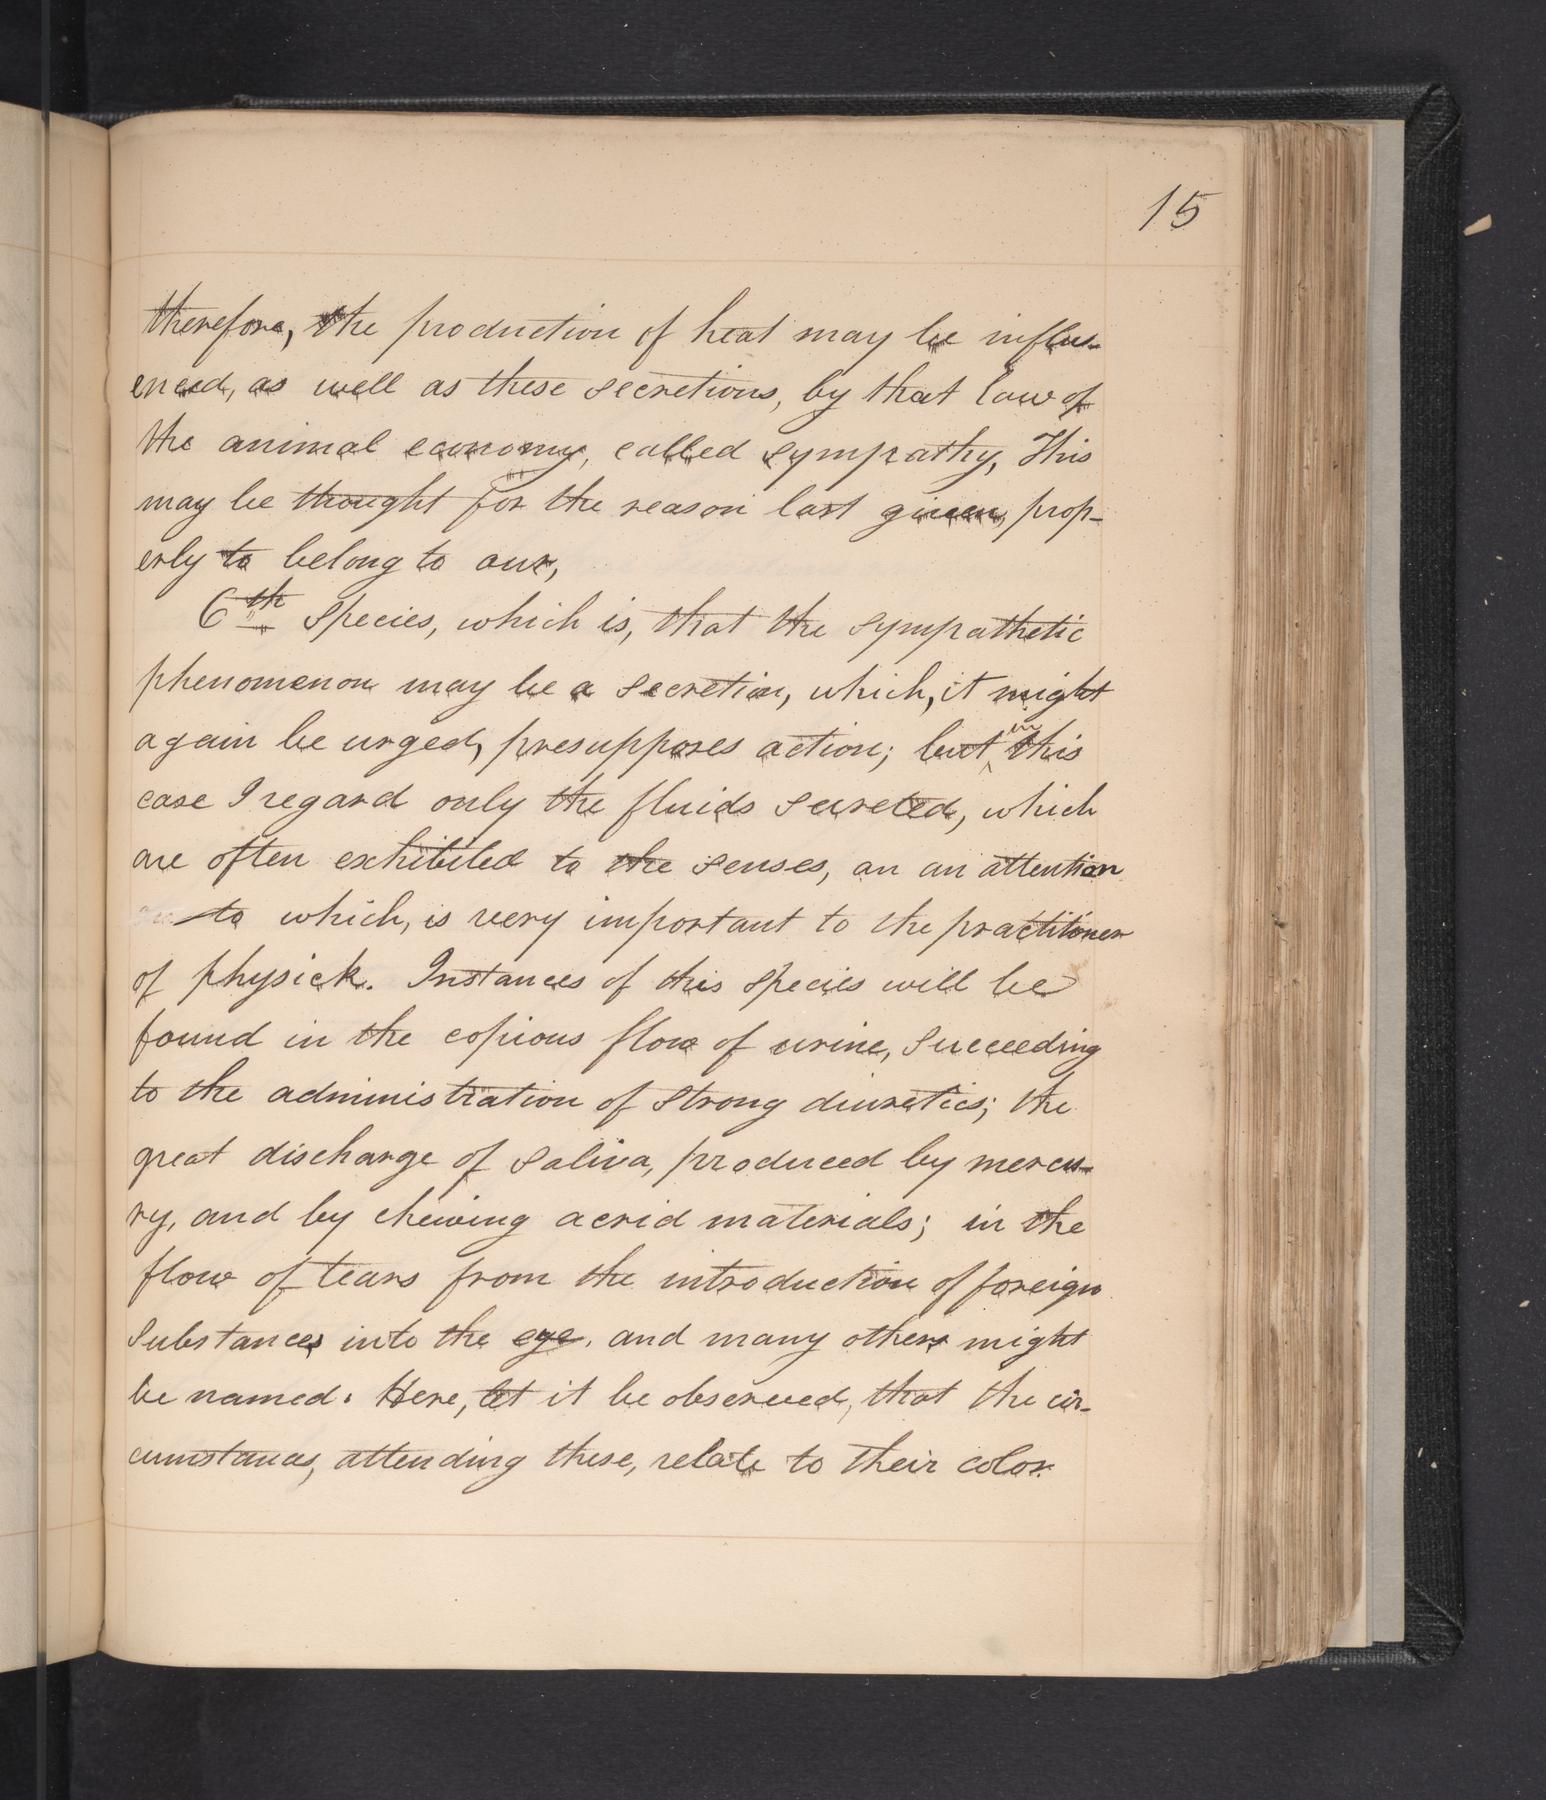 15
therefore, the production of heat may be influ-
enced, as well as these secretions, by that law of
the animal economy, called sympathy, This
may be thought for the reason last given, prop-
erly to belong to our,
6th Species, which is, that the sympathetic
phenomenon may be a secretion, which, it might
again be urged, presupposes action; but in this
case I regard only the fluids secreted, which
are often exhibited to the senses, an an attention
to which, is very important to the practitioner
of physick. Instances of this species will be
found in the copious flow of urine, succeeding
to the administration of strong diuretics; the
great discharge of saliva, produced by mercu-
ry, and by chewing acrid materials; in the
flow of tears from the introduction of foreign
substances into the eye. and many others might
be named. Here, let it be observed, that the cir-
cumstances, attending these, relate to their color.